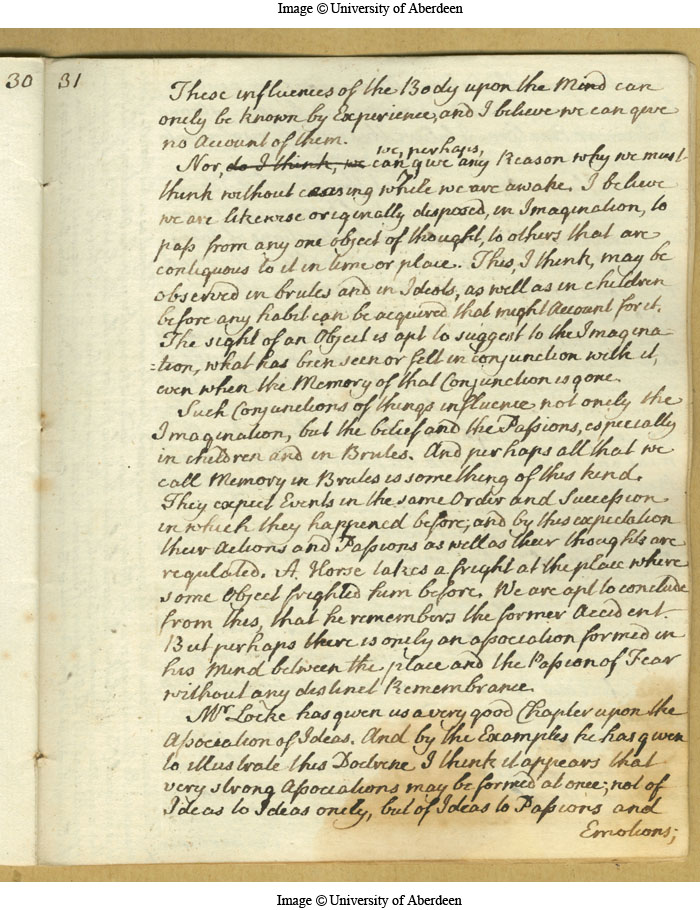 Image © University of Aberdeen
30 31
These influences of the Body upon the Mind can
onely be known by Experience, and I believe we can give
no Account of them.
we, perhaps,
Nor, do I think, we can give any Reason why we must
think without ceasing while we are awake. I believe
we are likewise originally disposed, in Imagination, to
pass from any one object of thought, to others that are
contiguous to it in time or place. This, I think, may be
observed in brutes and in Ideots, as well as in children
before any habit can be acquired that might Account for it.
The sight of an Object is apt to suggest to the Imagina-
=tion, what has been seen or felt in conjunction with it,
even when the Memory of that Conjunction is gone.
Such Conjunctions of things influence not onely the
Imagination, but the belief and the Passions, especially
in children and in Brutes. And perhaps all that we
call Memory in Brutes is something of this kind.
They expect Events in the same Order and Succession
in which they happened before; and by this expectation
their Actions and Passions as well as their thoughts are
regulated. A Horse takes a fright at the place where
some Object frighted him before. We are apt to conclude
from this, that he remembers the former Accident.
But perhaps there is onely an association formed in
his Mind between the place and the Passion of Fear
without any distinct Remembrance.
Mr Locke has given us a very good Chapter upon the
Association of Ideas. And by the Examples he has given
to illustrate this Doctrine I think it appears that
very strong Associations may be formed at once; not of
Ideas to Ideas onely, but of Ideas to Passions and
Emotions;
Image © University of Aberdeen